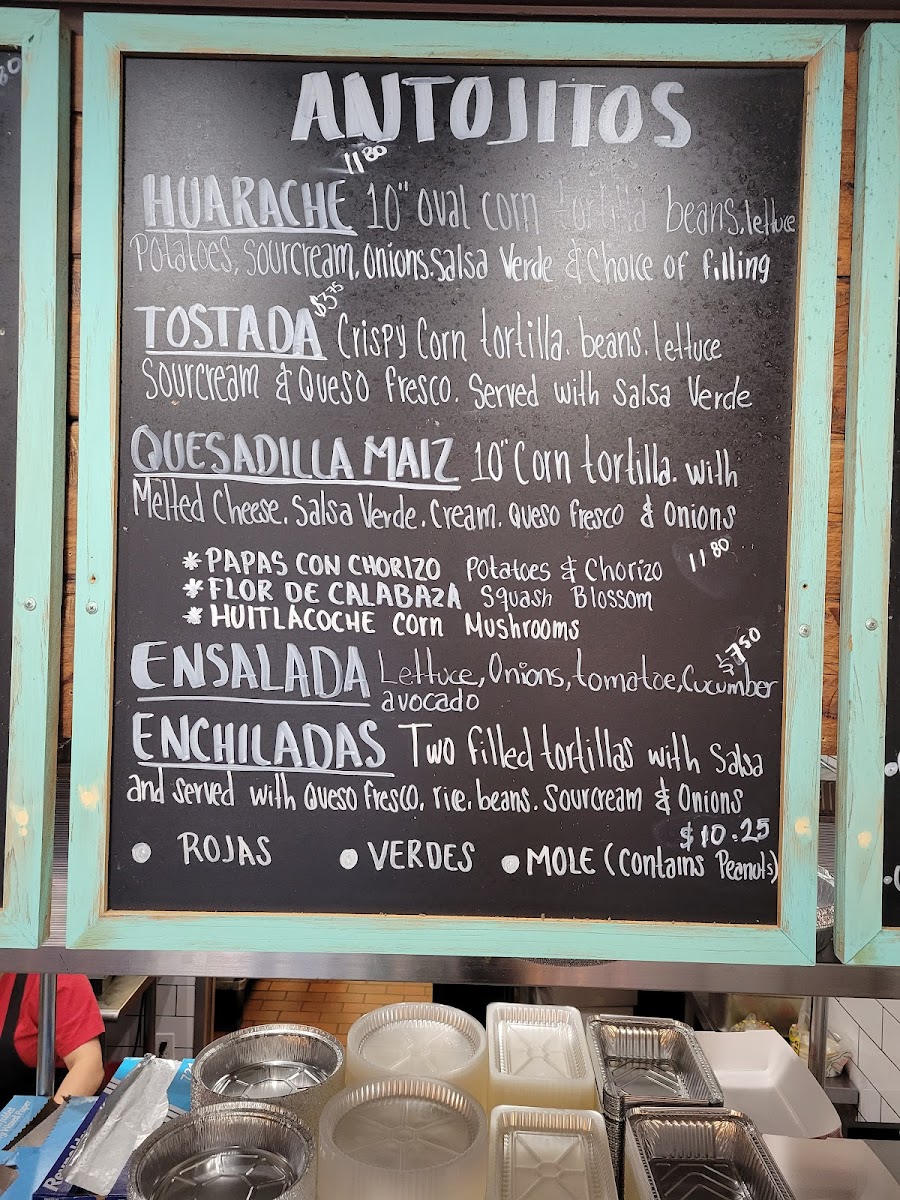 ANTOJITOS
11 80
HUARACHE 10" oval corn tortilla beans, lettuce
Potatoes, Sourcream, onions. Salsa Verde & Choice of filling
$3.75
TOSTADA Crispy Corn tortilla. beans. lettuce
Sourcream & Queso fresco. Served with salsa Verde
QUESADILLA MAIZ 10" Corn tortilla. with
Melted Cheese. Salsa Verde. Cream. Queso fresco & Onions
* PAPAS CON CHORIZO Potatoes & Chorizo 11 80
* FLOR DE CALABAZA Squash Blossom
* HUITLACOCHE Corn Mushrooms
ENSALADA Lettuce, Onions, tomatoe, Cucumber $7.50
avocado
ENCHILADAS Two filled tortillas with Salsa
and served with Queso fresco, rice. beans. Sourcream & Onions
$10.25
• ROJAS • VERDES • MOLE (Contains Peanuts)